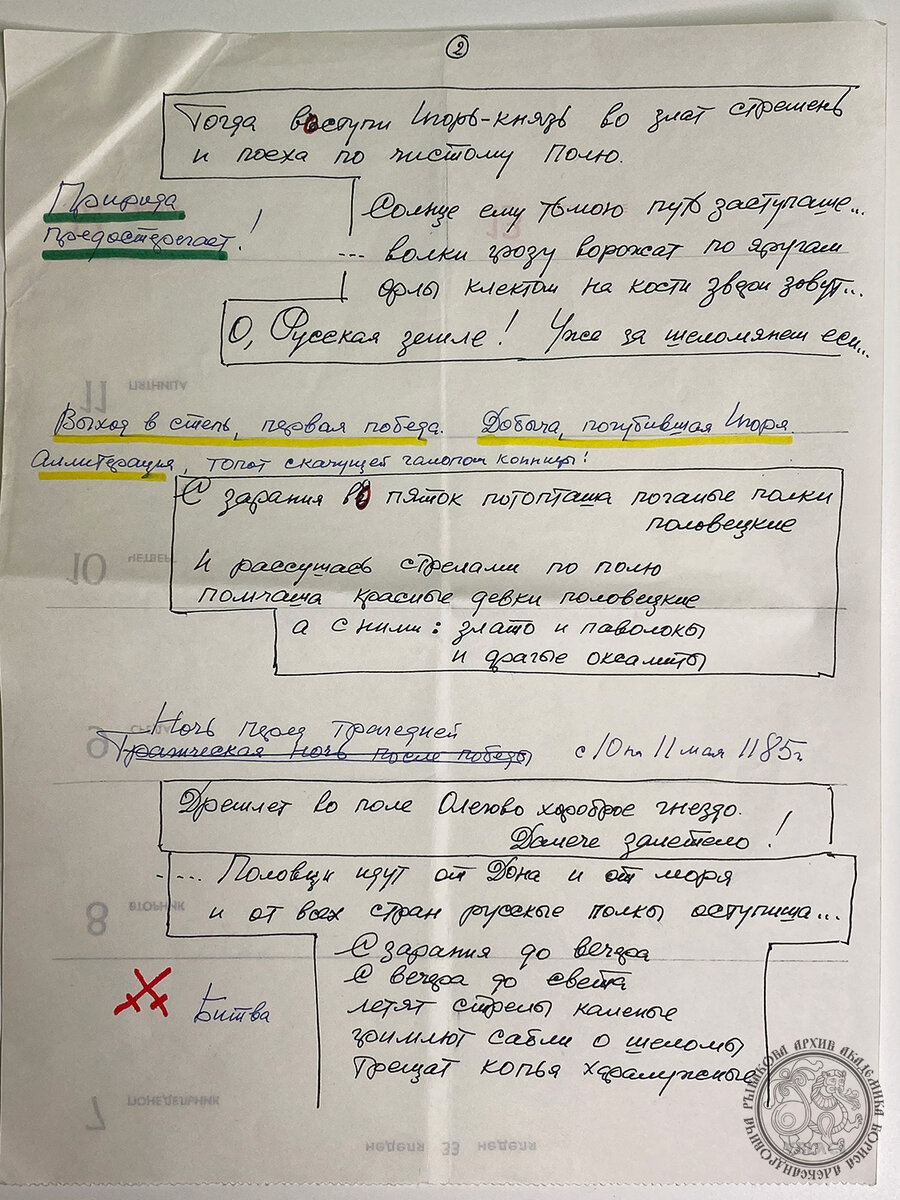 2
Тогда вступи Игорь-князь во злат стремень
и поеха по чистому Полю.
Природа
предостерегает!
Солнце ему тьмою путь заступаше...
... волки грозу ворожат по яругам
орлы клектом на кости звери зовут...
О, Русская земле! Уже за шеломянем еси...
11 ПЯТНИЦА
Выход в степь, первая победа. Добыча, погубившая Игоря
Аллитерация, топот скачущей галопом конницы!
С зарания в пяток потопташа поганые полки
половецкие
10 ЧЕТВЕРГ
И рассушась стрелами по полю
помчаша красные девки половецкие
а с ними: злато и паволокы
и драгые оксамиты
9 СРЕДА
Ночь перед трагедией
Трагическая ночь после победы с 10 на 11 мая 1185 г
Дремлет во поле Ольгово хороброе гнездо.
Далече залетело!
..... Половци идут от Дона и от моря
и от всех стран русские полкы оступиша...
8 ВТОРНИК
С зарания до вечера
С вечера до света
летят стрелы каленые
Битва
гримлют сабли о шеломы
трещат копья харалужные
7 ПОНЕДЕЛЬНИК
неделя 33 неделя
АРХИВ АКАДЕМИКА БОРИСА АЛЕКСАНДРОВИЧА РЫБАКОВА